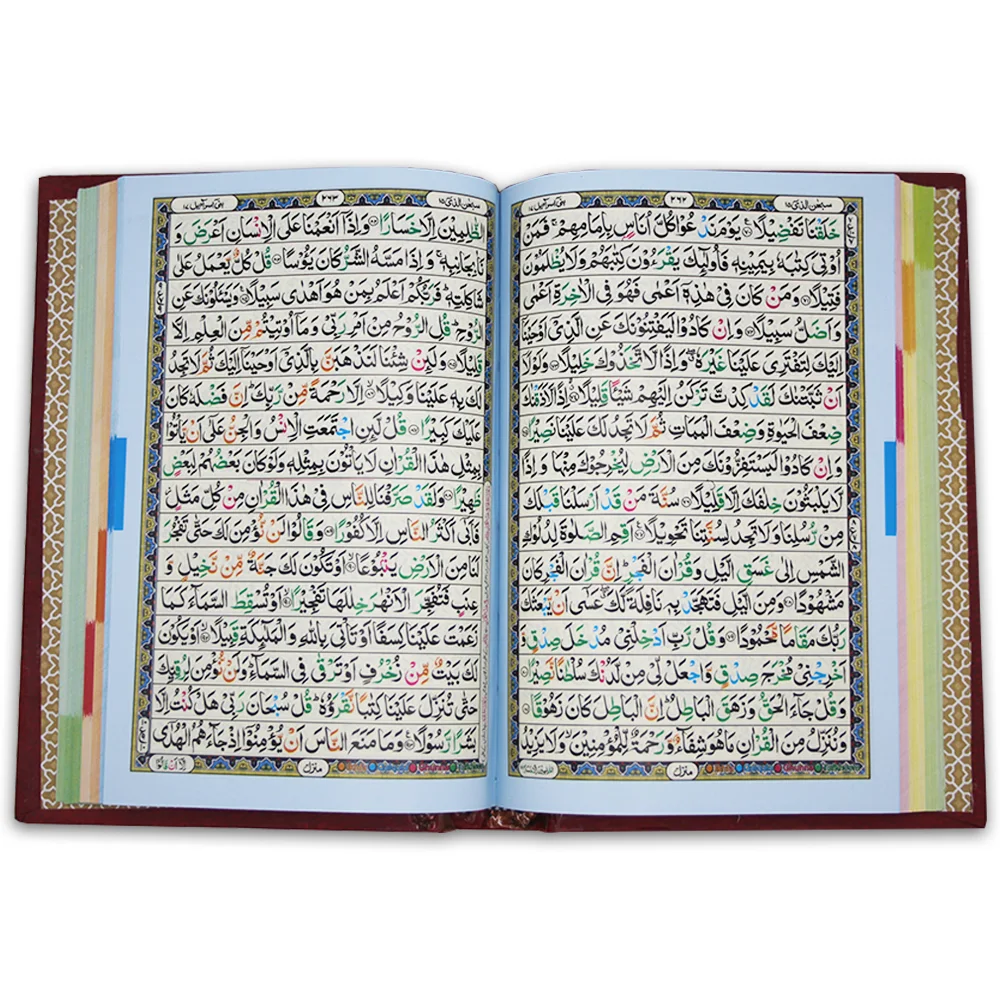 سبحٰن الذی ۱۵
۲۶۲
بنی اسرآءیل ۱۷
خَلَقْنَا تَفْضِیْلًا ﴿۷۰﴾ یَوْمَ نَدْعُوْا كُلَّ اُنَاسٍۭ بِاِمَامِهِمْ ۚ فَمَنْ
اُوْتِیَ كِتٰبَهٗ بِیَمِیْنِهٖ فَاُولٰٓئِكَ یَقْرَءُوْنَ كِتٰبَهُمْ وَلَا یُظْلَمُوْنَ
فَتِیْلًا ﴿۷۱﴾ وَمَنْ كَانَ فِیْ هٰذِهٖۤ اَعْمٰی فَهُوَ فِی الْاٰخِرَةِ اَعْمٰی
وَاَضَلُّ سَبِیْلًا ﴿۷۲﴾ وَاِنْ كَادُوْا لَیَفْتِنُوْنَكَ عَنِ الَّذِیْۤ اَوْحَیْنَاۤ
اِلَیْكَ لِتَفْتَرِیَ عَلَیْنَا غَیْرَهٗ ۖ وَاِذًا لَّاتَّخَذُوْكَ خَلِیْلًا ﴿۷۳﴾ وَلَوْلَاۤ
اَنْ ثَبَّتْنٰكَ لَقَدْ كِدْتَّ تَرْكَنُ اِلَیْهِمْ شَیْئًا قَلِیْلًا ﴿۷۴﴾ اِذًا لَّاَذَقْنٰكَ
ضِعْفَ الْحَیٰوةِ وَضِعْفَ الْمَمَاتِ ثُمَّ لَا تَجِدُ لَكَ عَلَیْنَا نَصِیْرًا ﴿۷۵﴾
وَاِنْ كَادُوْا لَیَسْتَفِزُّوْنَكَ مِنَ الْاَرْضِ لِیُخْرِجُوْكَ مِنْهَا وَاِذًا
لَّا یَلْبَثُوْنَ خِلٰفَكَ اِلَّا قَلِیْلًا ﴿۷۶﴾ سُنَّةَ مَنْ قَدْ اَرْسَلْنَا قَبْلَكَ
مِنْ رُّسُلِنَا وَلَا تَجِدُ لِسُنَّتِنَا تَحْوِیْلًا ﴿۷۷﴾ اَقِمِ الصَّلٰوةَ لِدُلُوْكِ
الشَّمْسِ اِلٰی غَسَقِ الَّیْلِ وَقُرْاٰنَ الْفَجْرِ ؕ اِنَّ قُرْاٰنَ الْفَجْرِ كَانَ
مَشْهُوْدًا ﴿۷۸﴾ وَمِنَ الَّیْلِ فَتَهَجَّدْ بِهٖ نَافِلَةً لَّكَ ۖ عَسٰۤی اَنْ یَّبْعَثَكَ
رَبُّكَ مَقَامًا مَّحْمُوْدًا ﴿۷۹﴾ وَقُلْ رَّبِّ اَدْخِلْنِیْ مُدْخَلَ صِدْقٍ وَّ
اَخْرِجْنِیْ مُخْرَجَ صِدْقٍ وَّاجْعَلْ لِّیْ مِنْ لَّدُنْكَ سُلْطٰنًا نَّصِیْرًا ﴿۸۰﴾
وَقُلْ جَآءَ الْحَقُّ وَزَهَقَ الْبَاطِلُ ؕ اِنَّ الْبَاطِلَ كَانَ زَهُوْقًا ﴿۸۱﴾
وَنُنَزِّلُ مِنَ الْقُرْاٰنِ مَا هُوَ شِفَآءٌ وَّرَحْمَةٌ لِّلْمُؤْمِنِیْنَ ۙ وَلَا یَزِیْدُ
منزل
سبحٰن الذی ۱۵
۲۶۳
بنی اسرآءیل ۱۷
الظّٰلِمِیْنَ اِلَّا خَسَارًا ﴿۸۲﴾ وَاِذَاۤ اَنْعَمْنَا عَلَی الْاِنْسَانِ اَعْرَضَ وَ
نَاٰ بِجَانِبِهٖ ۚ وَاِذَا مَسَّهُ الشَّرُّ كَانَ یَـُٔوْسًا ﴿۸۳﴾ قُلْ كُلٌّ یَّعْمَلُ عَلٰی
شَاكِلَتِهٖ ؕ فَرَبُّكُمْ اَعْلَمُ بِمَنْ هُوَ اَهْدٰی سَبِیْلًا ﴿۸۴﴾ وَیَسْـَٔلُوْنَكَ عَنِ
الرُّوْحِ ؕ قُلِ الرُّوْحُ مِنْ اَمْرِ رَبِّیْ وَمَاۤ اُوْتِیْتُمْ مِّنَ الْعِلْمِ اِلَّا
قَلِیْلًا ﴿۸۵﴾ وَلَئِنْ شِئْنَا لَنَذْهَبَنَّ بِالَّذِیْۤ اَوْحَیْنَاۤ اِلَیْكَ ثُمَّ لَا تَجِدُ
لَكَ بِهٖ عَلَیْنَا وَكِیْلًا ﴿۸۶﴾ اِلَّا رَحْمَةً مِّنْ رَّبِّكَ ؕ اِنَّ فَضْلَهٗ كَانَ
عَلَیْكَ كَبِیْرًا ﴿۸۷﴾ قُلْ لَّئِنِ اجْتَمَعَتِ الْاِنْسُ وَالْجِنُّ عَلٰۤی اَنْ یَّاْتُوْا
بِمِثْلِ هٰذَا الْقُرْاٰنِ لَا یَاْتُوْنَ بِمِثْلِهٖ وَلَوْ كَانَ بَعْضُهُمْ لِبَعْضٍ
ظَهِیْرًا ﴿۸۸﴾ وَلَقَدْ صَرَّفْنَا لِلنَّاسِ فِیْ هٰذَا الْقُرْاٰنِ مِنْ كُلِّ مَثَلٍ ؗ
فَاَبٰۤی اَكْثَرُ النَّاسِ اِلَّا كُفُوْرًا ﴿۸۹﴾ وَقَالُوْا لَنْ نُّؤْمِنَ لَكَ حَتّٰی تَفْجُرَ
لَنَا مِنَ الْاَرْضِ یَنْۢبُوْعًا ﴿۹۰﴾ اَوْ تَكُوْنَ لَكَ جَنَّةٌ مِّنْ نَّخِیْلٍ وَّ
عِنَبٍ فَتُفَجِّرَ الْاَنْهٰرَ خِلٰلَهَا تَفْجِیْرًا ﴿۹۱﴾ اَوْ تُسْقِطَ السَّمَآءَ كَمَا
زَعَمْتَ عَلَیْنَا كِسَفًا اَوْ تَاْتِیَ بِاللّٰهِ وَالْمَلٰٓئِكَةِ قَبِیْلًا ﴿۹۲﴾ اَوْ یَكُوْنَ
لَكَ بَیْتٌ مِّنْ زُخْرُفٍ اَوْ تَرْقٰی فِی السَّمَآءِ ؕ وَلَنْ نُّؤْمِنَ لِرُقِیِّكَ
حَتّٰی تُنَزِّلَ عَلَیْنَا كِتٰبًا نَّقْرَؤُهٗ ؕ قُلْ سُبْحَانَ رَبِّیْ هَلْ كُنْتُ اِلَّا
بَشَرًا رَّسُوْلًا ﴿۹۳﴾ وَمَا مَنَعَ النَّاسَ اَنْ یُّؤْمِنُوْۤا اِذْ جَآءَهُمُ الْهُدٰۤی
منزل
اِلَّاۤ اَنْ قَالُوْۤا